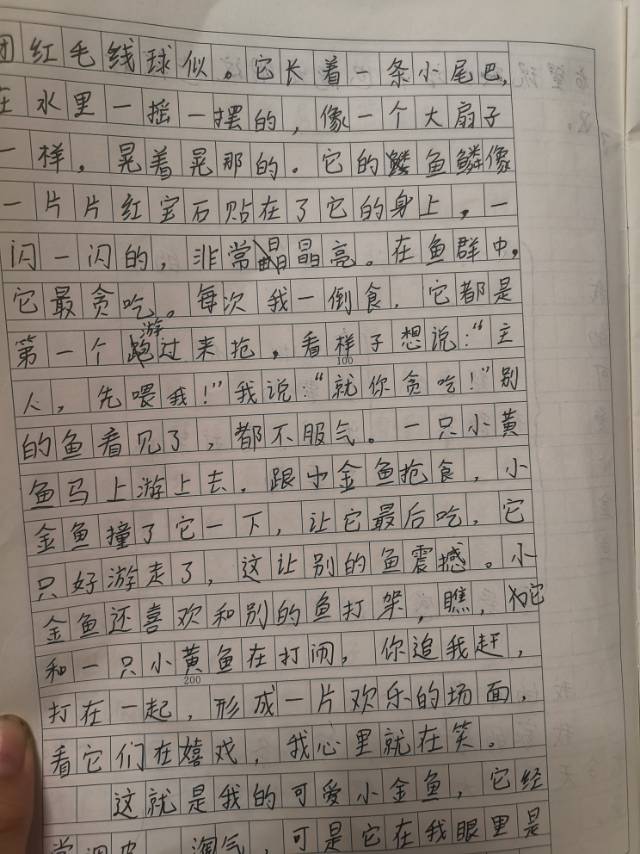 团红毛线球似。它长着一条小尾巴,
在水里一摇一摆的,像一个大扇子
一样。晃着晃那的。它的鱼鳞像
一片片红宝石贴在了它的身上,一
闪一闪的,非常晶亮。在鱼群中,
它最贪吃。每次我一倒食,它都是
第一个游过来抢,看样子想说:“主
人,先喂我!”我说:“就你贪吃!”别
的鱼看见了,都不服气。一只小黄
鱼马上游上去,跟小金鱼抢食,小
金鱼撞了它一下,让它最后吃,它
只好游走了,这让别的鱼震撼。小
金鱼还喜欢和别的鱼打架,瞧,它
和一只小黄鱼在打闹,你追我赶,
打在一起,形成一片欢乐的场面,
看它们在嬉戏,我心里就在笑。
这就是我的可爱小金鱼,它经
常调皮、淘气,可是它在我眼里是
100
200